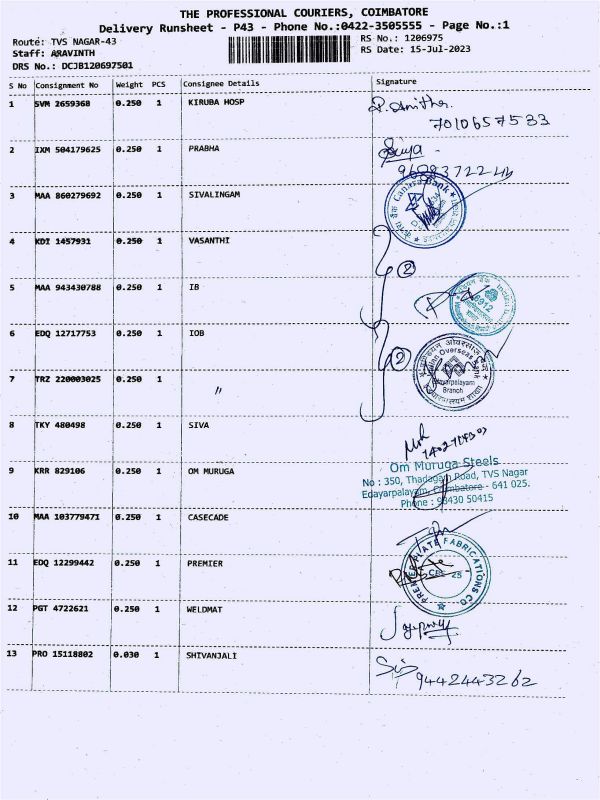 THE PROFESSIONAL COURIERS, COIMBATORE
Delivery Runsheet - P43 - Phone No.:0422-3505555 - Page No.:1
Route: TVS NAGAR-43
Staff: ARAVINTH
DRS No.: DCJB120697501
RS No.: 1206975
RS Date: 15-Jul-2023
S No Consignment No Weight PCS Consignee Details Signature
1 SVM 2659368 0.250 1 KIRUBA HOSP
7010657533
2 IXM 504179625 0.250 1 PRABHA
3 MAA 860279692 0.250 1 SIVALINGAM
Canara Bank
4 KDI 1457931 0.250 1 VASANTHI
2
5 MAA 943430788 0.250 1 IB
6 EDQ 12717753 0.250 1 IOB
2
Indian Overseas Bank
Edayarpalayam
Branch
7 TRZ 220003025 0.250 1 "
8 TKY 480498 0.250 1 SIVA
9 KRR 829106 0.250 1 OM MURUGA
Om Muruga Steels
No : 350, Thadagam Road, TVS Nagar
Edayarpalayam, Coimbatore - 641 025.
Phone : 98430 50415
10 MAA 103779471 0.250 1 CASECADE
11 EDQ 12299442 0.250 1 PREMIER
PREMIER PLATE FABRICATIONS CO.
CBE 25
12 PGT 4722621 0.250 1 WELDMAT
13 PRO 15118802 0.030 1 SHIVANJALI
9442443262